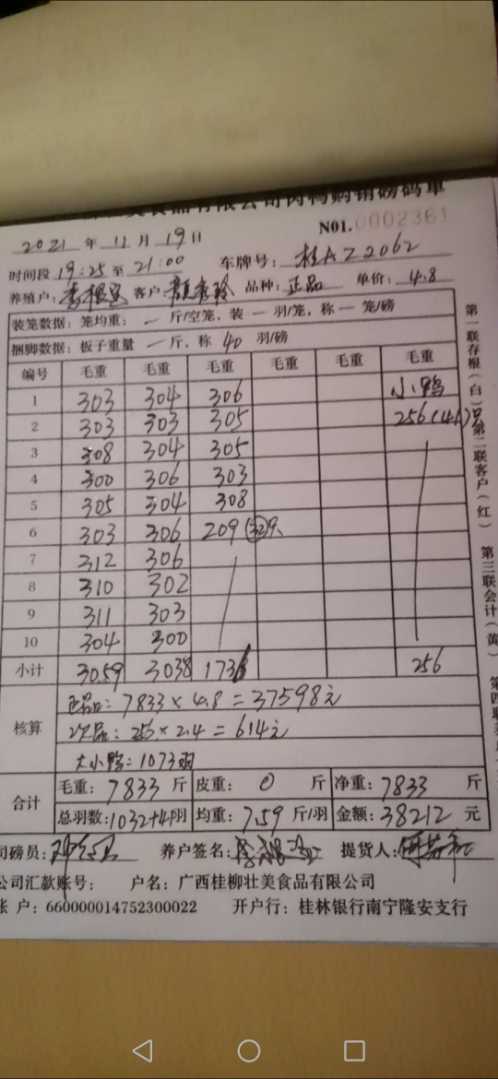 食品有限公司肉鸭购销磅码单
NO1.0002361
2021 年 11 月 19 日
时间段 19:25 至 21:00 车牌号: 桂AZ2062
养殖户: 客户: 品种: 正品 单价: 4.8
装笼数据: 笼均重: 一 斤/空笼, 装 一 羽/笼, 称 一 笼/磅
捆脚数据: 板子重量 一 斤, 称 40 羽/磅
编号 毛重 毛重 毛重 毛重 毛重 毛重
1 303 304 306 小鸭
2 303 303 305 256(41)只
3 308 304 305
4 300 306 303
5 305 304 308
6 303 306 209(32羽)
7 312 306
8 310 302
9 311 303
10 304 300
小计 3059 3038 1736 256
核算
正品: 7833×4.8=37598元
次品: 256×2.4=614元
大小鸭: 1073羽
合计
毛重: 7833 斤 皮重: 0 斤 净重: 7833 斤
总羽数: 1032+41羽 均重: 7.59 斤/羽 金额: 38212 元
司磅员: 养户签名: 提货人:
公司汇款账号: 户名: 广西桂柳壮美食品有限公司
账 户: 660000014752300022 开户行: 桂林银行南宁隆安支行
第一联存根(白) 第二联客户(红) 第三联会计(黄) 第四联